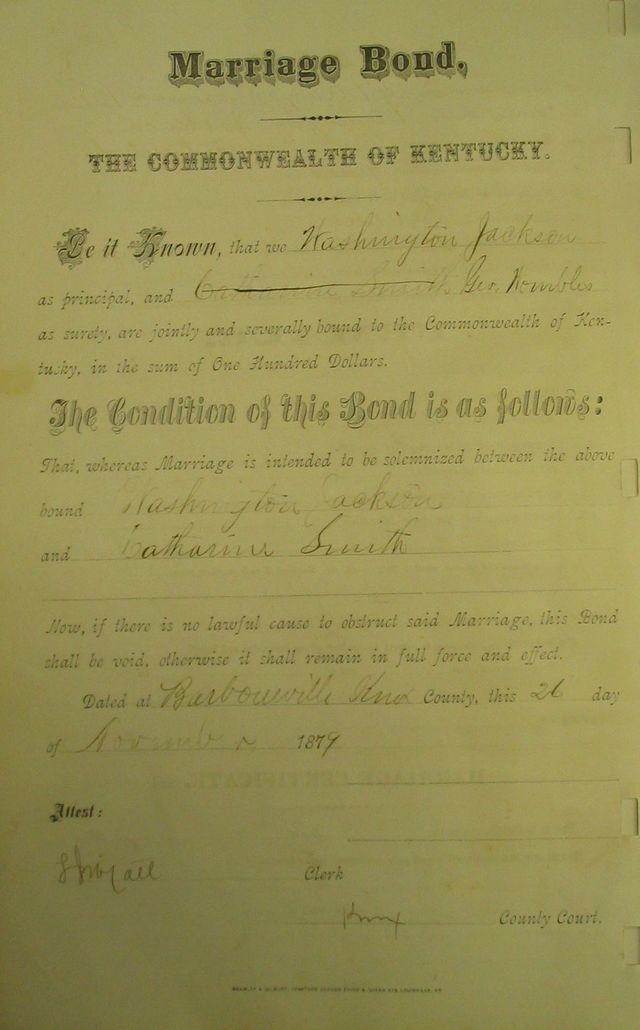 Marriage Bond.
THE COMMONWEALTH OF KENTUCKY.
Be it Known, that we Washington Jackson
as principal, and Catharine Smith Geo. Wombles
as surety, are jointly and severally bound to the Commonwealth of Ken-
tucky, in the sum of One Hundred Dollars.
The Condition of this Bond is as follows:
That, whereas Marriage is intended to be solemnized between the above
bound Washington Jackson
and Catharine Smith
Now, if there is no lawful cause to obstruct said Marriage, this Bond
shall be void, otherwise it shall remain in full force and effect.
Dated at Barbourville Knox County, this day
of November 1879
Attest:
Clerk
Knox County Court.